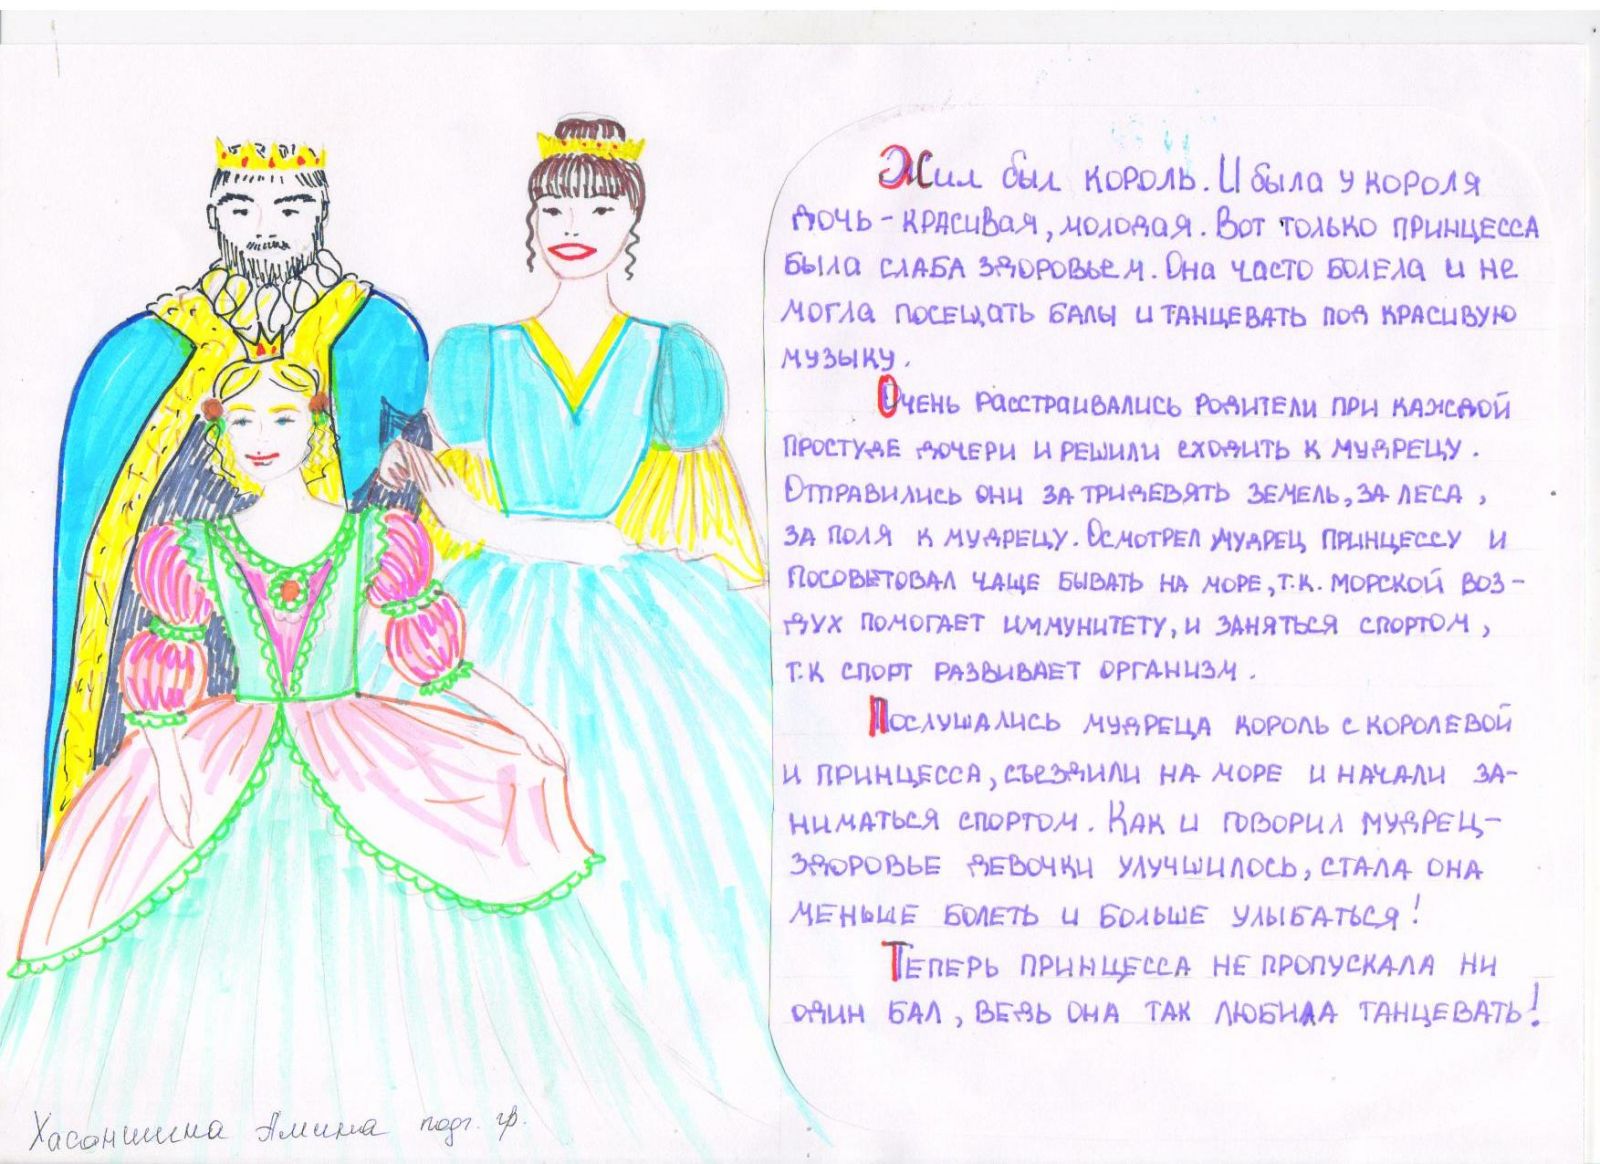 Жил был король. И была у короля
дочь - красивая, молодая. Вот только принцесса
была слаба здоровьем. Она часто болела и не
могла посещать балы и танцевать под красивую
музыку.
Очень расстраивались родители при каждой
простуде дочери и решили сходить к мудрецу.
Отправились они за тридевять земель, за леса,
за поля к мудрецу. Осмотрел мудрец принцессу и
посоветовал чаще бывать на море, т.к. морской воз-
дух помогает иммунитету, и заняться спортом,
т.к спорт развивает организм.
Послушались мудреца король с королевой
и принцесса, съездили на море и начали за-
ниматься спортом. Как и говорил мудрец-
здоровье девочки улучшилось, стала она
меньше болеть и больше улыбаться!
Теперь принцесса не пропускала ни
один бал, ведь она так любила танцевать!
Хасаншина Амина подг. гр.